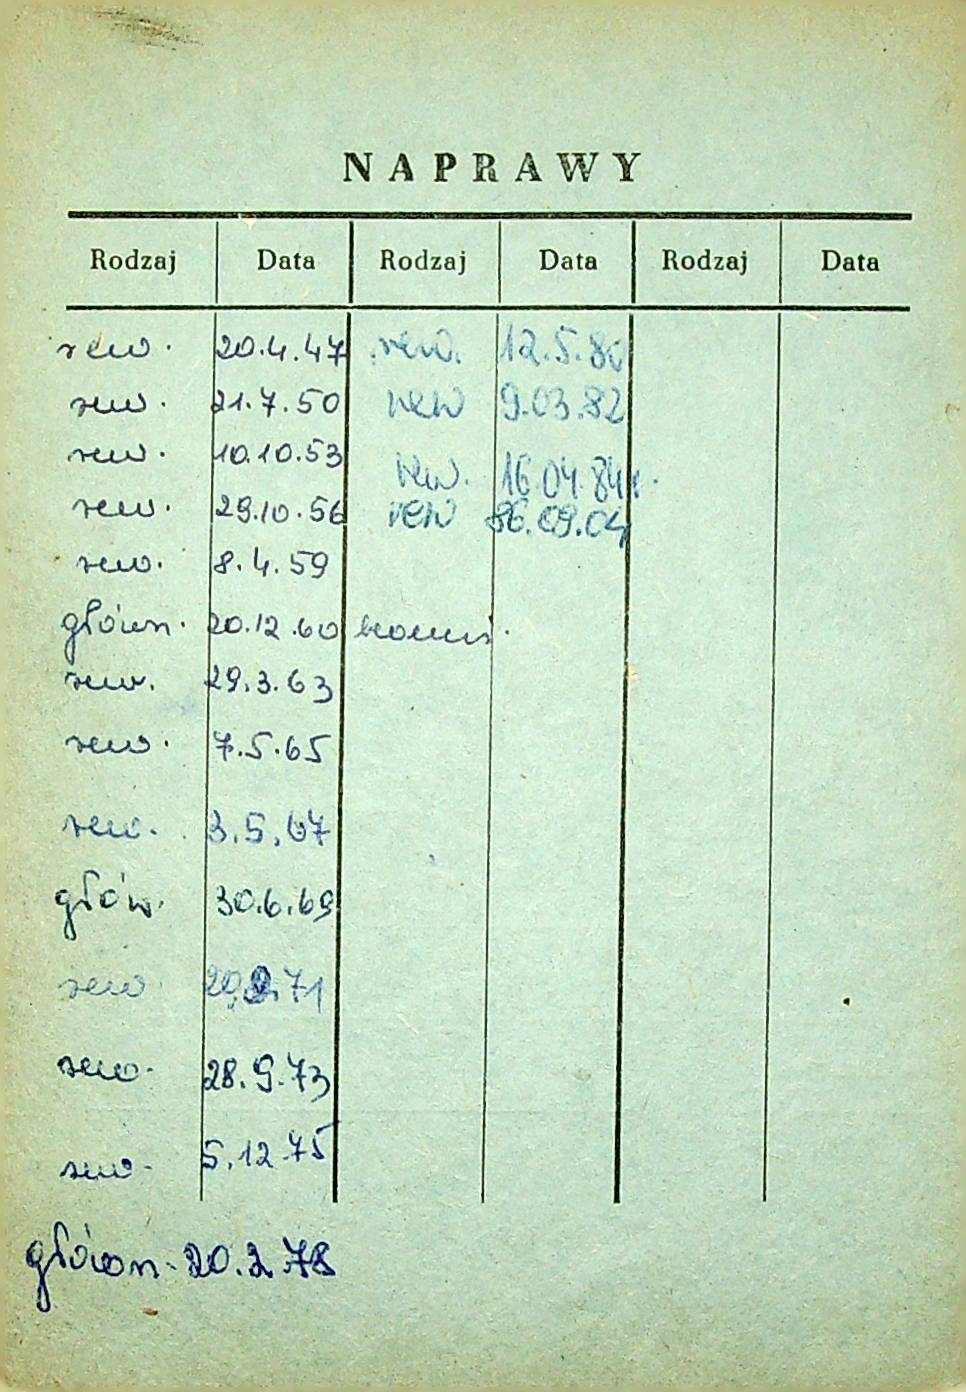 NAPRAWY
Rodzaj Data Rodzaj Data Rodzaj Data
rew. 20.4.47 rew. 12.5.80
rew. 21.7.50 rew 9.03.82
rew. 10.10.53 rew. 16.04.84r.
rew. 29.10.56 rew 86.09.04
rew. 8.4.59
główn. 20.12.60
rew. 29.3.63
rew. 7.5.65
rew. 3.5.67
głów. 30.6.69
rew. 71
rew. 28.9.73
rew. 5.12.75
główn. 20.2.78